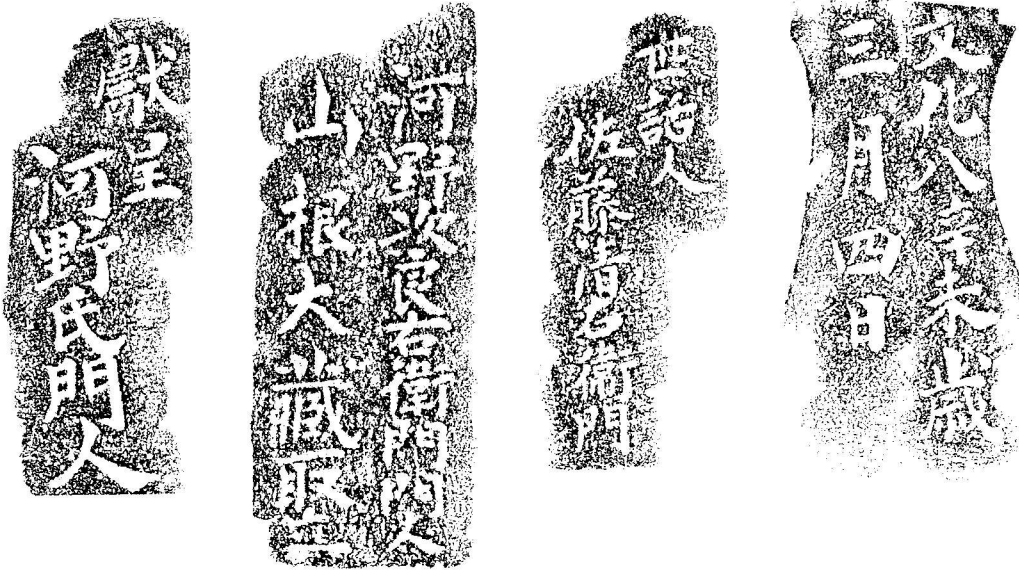 文化八辛未歳
三月四日
世話人
佐藤清右衛門
河野次良右衛門門人
山根大藏取立
獻呈
河野氏門人